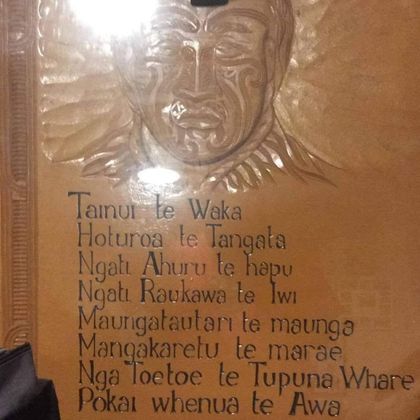 Tainui te Waka
Hoturoa te Tangata
Ngati Ahuru te hapu
Ngati Raukawa te Iwi
Maungatautari te maunga
Mangakaretu te marae
Nga Toetoe te Tupuna Whare
Pokai whenua te Awa